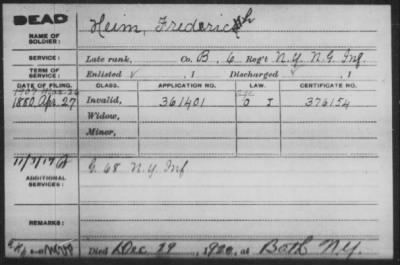 DEAD
NAME OF SOLDIER: Heim, Frederick
SERVICE: Late rank, Co. B, 6 Reg't N.Y. N.G. Inf.
TERM OF SERVICE: Enlisted , 1 Discharged , 1
DATE OF FILING. CLASS. APPLICATION NO. LAW. CERTIFICATE NO.
1880, Apr. 27 Invalid, 361401 O J 376154
Widow,
Minor,
ADDITIONAL SERVICES: G. 68 N.Y. Inf
REMARKS:
Died Dec 29, 1920, at Bath N.Y.